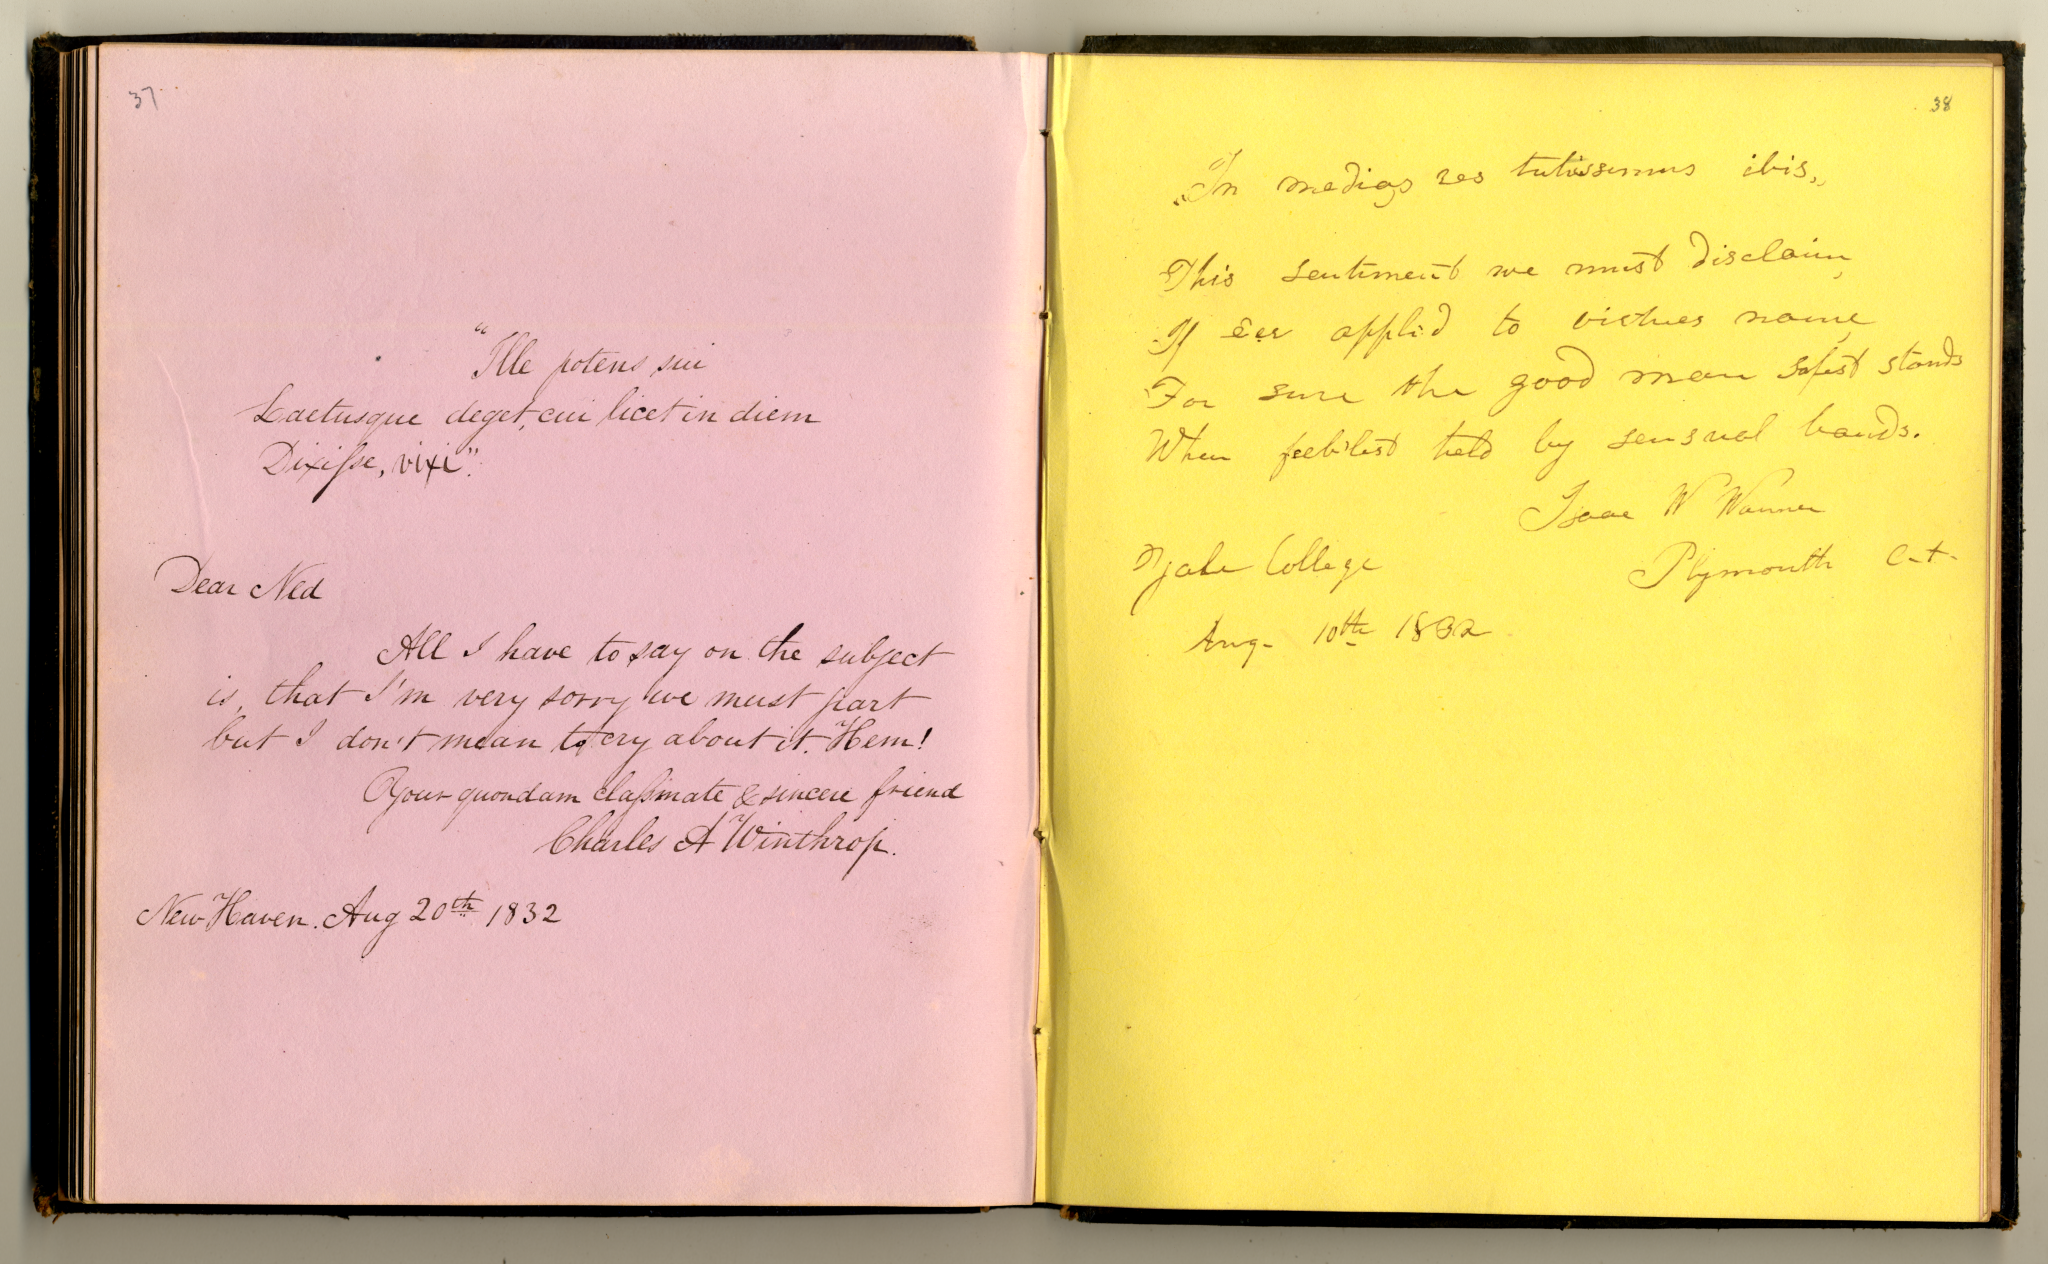 37
"Ille potens sui
Laetusque deget, cui licet in diem
Dixiſse, vixi".
Dear Ned
All I have to say on the subject
is, that I'm very sorry we must part
but I don't mean to cry about it. Hem!
Your quondam claſsmate & sincere friend
Charles A Winthrop.
New Haven. Aug 20th 1832
38
„In medias res tutissimus ibis„
This sentiment we must disclaim,
If e'er applied to virtues name
For sure the good man safest stands
When feeblest held by sensual bands.
Isaac W Warner
Yale College
Plymouth C-t-
Aug- 10th 1832